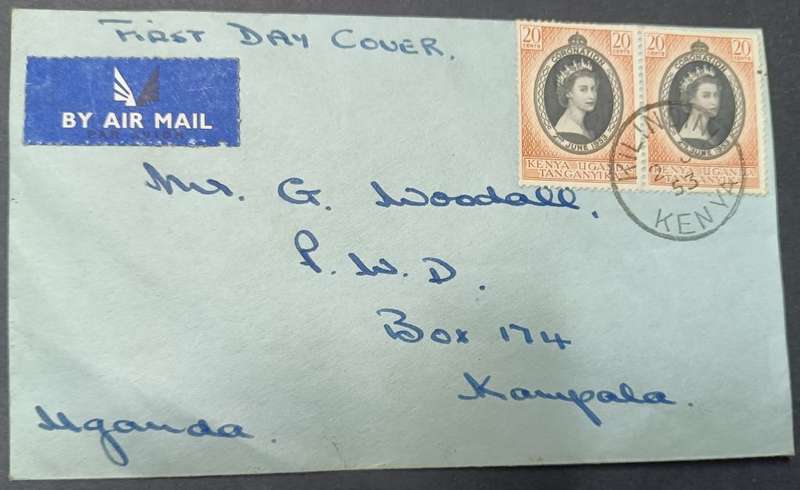 FIRST DAY COVER.
BY AIR MAIL
PAR AVION
20 CENTS
20 CENTS
CORONATION
2ND JUNE 1953
KENYA UGANDA
TANGANYIKA
20 CENTS
20 CENTS
CORONATION
2ND JUNE 1953
KENYA UGANDA
2
53
KENYA
Mr. G. Woodall,
P. W. D.
Box 174
Kampala.
Uganda.